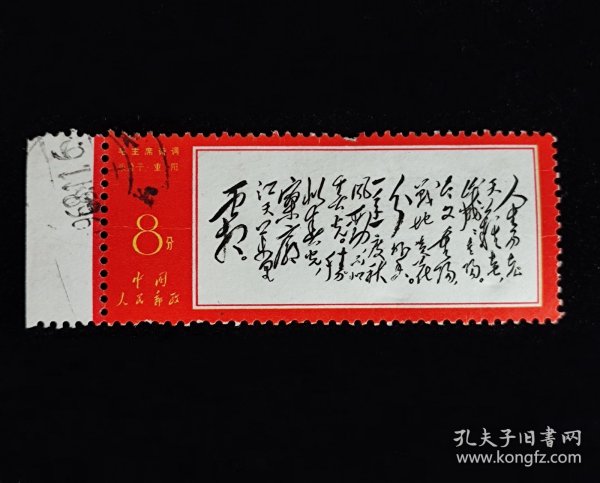 毛主席诗词
采桑子·重阳
8分
中国
人民邮政
人生易老
天难老
岁岁重阳
今又重阳
战地黄花
分外香
一年一度秋
风劲不似
春光胜
似春光
寥廓
江天万里
霜
孔夫子旧书网
www.kongfz.com